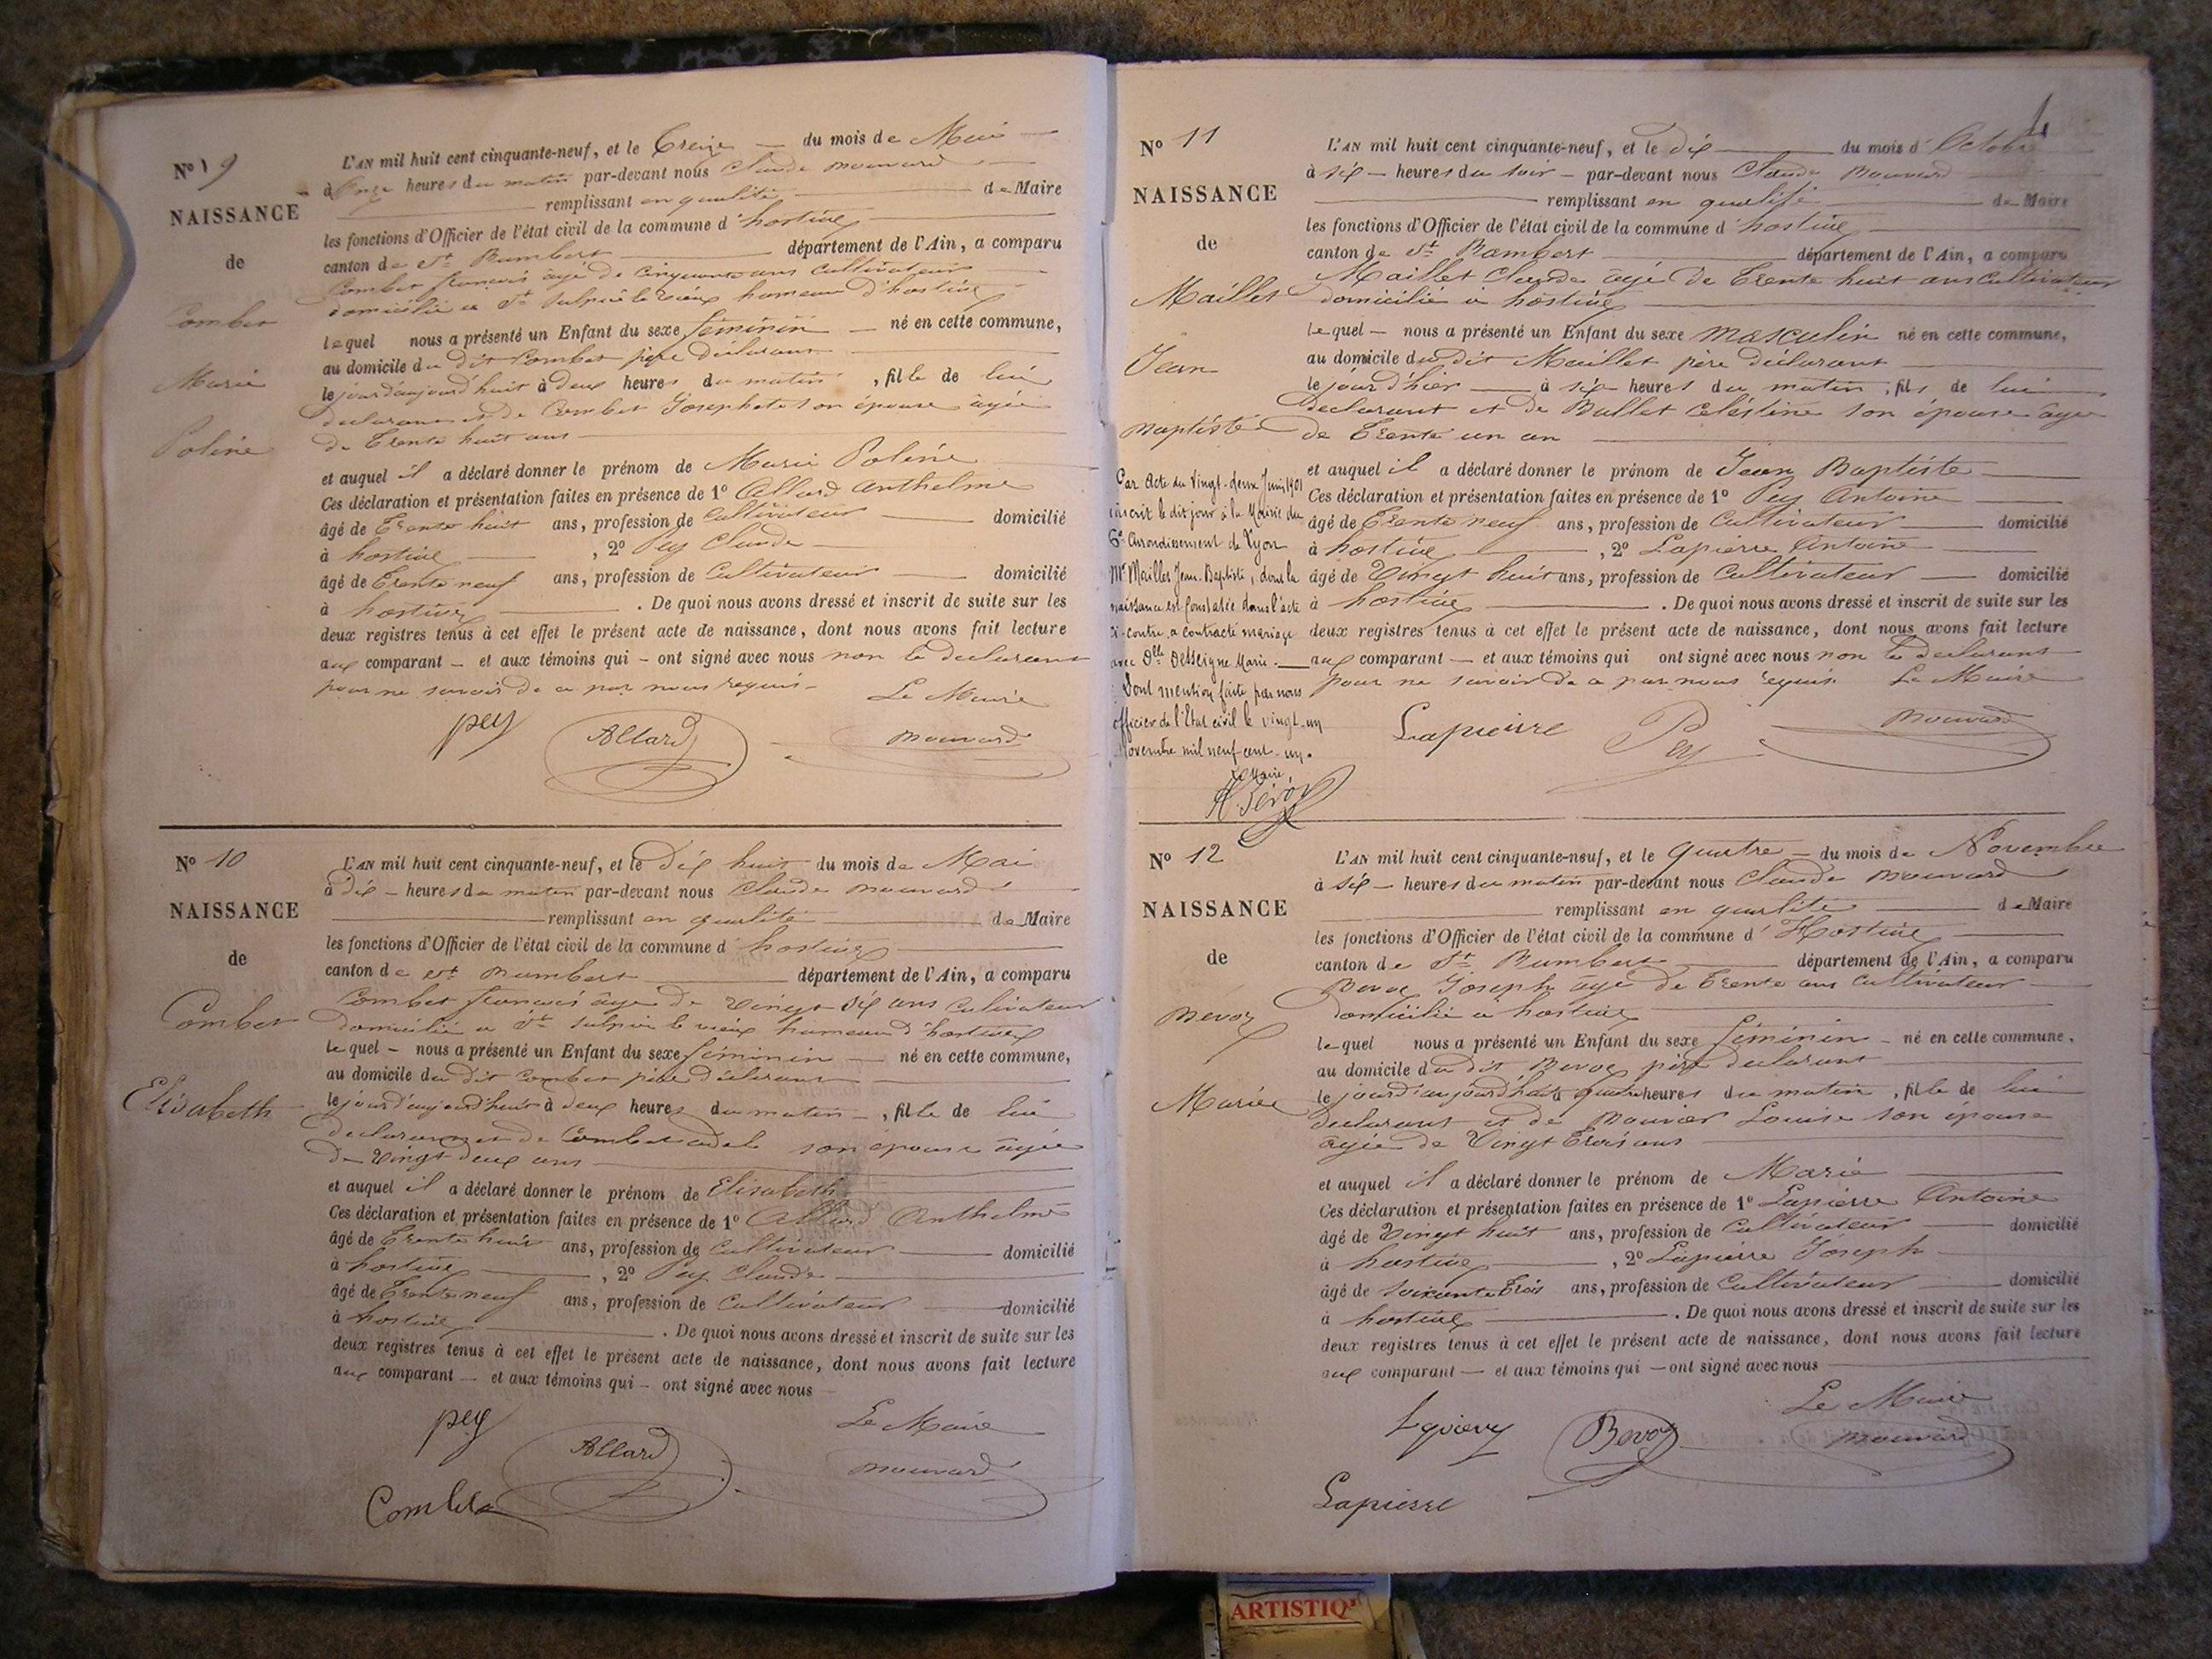 N° 9
NAISSANCE
de
Combet
Marie
Poline
L'AN mil huit cent cinquante-neuf, et le Treize du mois de Mai
à onze heures du matin par-devant nous Claude
remplissant en qualité de Maire
les fonctions d'Officier de l'état civil de la commune d'hostiaz
canton de St Rambert département de l'Ain, a comparu
Combet francois âgé de cinquante ans cultivateur
domicilié a St Sulpice le vieux hameau d'hostiaz
lequel nous a présenté un Enfant du sexe féminin né en cette commune,
au domicile du dit Combet père déclarant
le jour d'aujourd'huit à deux heures du matin, fille de lui
declarant et de Combet Josephete son épouse âgée
de Trente huit ans
et auquel il a déclaré donner le prénom de Marie Poline
Ces déclaration et présentation faites en présence de 1° Allard Anthelme
âgé de Trente huit ans, profession de Cultivateur domicilié
à hostiaz, 2° Pey Claude
âgé de Trente neuf ans, profession de Cultivateur domicilié
à hostiaz. De quoi nous avons dressé et inscrit de suite sur les
deux registres tenus à cet effet le présent acte de naissance, dont nous avons fait lecture
aux comparant et aux témoins qui ont signé avec nous non le declarant
pour ne savoir de ce par nous requis
Le Maire
pey Allard
N° 10
NAISSANCE
de
Combet
Elisabeth
L'AN mil huit cent cinquante-neuf, et le Dix huit du mois de Mai
à Dix heures du matin par-devant nous Claude
remplissant en qualité de Maire
les fonctions d'Officier de l'état civil de la commune d'hostiaz
canton de St Rambert département de l'Ain, a comparu
Combet francois âgé de Vingt six ans Cultivateur
domicilié a St Sulpice le vieux hameau d'hostiaz
lequel nous a présenté un Enfant du sexe féminin né en cette commune,
au domicile du dit Combet père déclarant
le jour d'aujourd'huit à deux heures du matin, fille de lui
declarant et de Combet adele son épouse âgée
de Vingt deux ans
et auquel il a déclaré donner le prénom de Elisabeth
Ces déclaration et présentation faites en présence de 1° Allard Anthelme
âgé de Trente huit ans, profession de Cultivateur domicilié
à hostiaz, 2° Pey Claude
âgé de Trente neuf ans, profession de Cultivateur domicilié
à hostiaz. De quoi nous avons dressé et inscrit de suite sur les
deux registres tenus à cet effet le présent acte de naissance, dont nous avons fait lecture
aux comparant et aux témoins qui ont signé avec nous
Le Maire
pey Allard
Combet
N° 11
NAISSANCE
de
Maillet
Jean
Baptiste
Par Acte du Vingt-deux Juin 1901
inscrit le dit jour à la Mairie du
6e Arrondissement de Lyon
Mr Maillet Jean-Baptiste, dont la
naissance est constatée dans l'acte
ci-contre, a contracté mariage
avec Dlle Desseigne Marie.
Dont mention faite par nous
officier de l'Etat civil le vingt-un
Novembre mil neuf cent-un.
Le Maire,
L'AN mil huit cent cinquante-neuf, et le dix du mois d'Octobre
à six heures du soir par-devant nous Claude
remplissant en qualité de Maire
les fonctions d'Officier de l'état civil de la commune d'hostiaz
canton de St Rambert département de l'Ain, a comparu
Maillet Claude âgé de Trente huit ans Cultivateur
domicilié à hostiaz
lequel nous a présenté un Enfant du sexe masculin né en cette commune,
au domicile du dit Maillet père déclarant
le jour d'hier à six heures du matin, fils de lui
declarant et de Ballet Celéstine son épouse âgée
de Trente un an
et auquel il a déclaré donner le prénom de Jean Baptiste
Ces déclaration et présentation faites en présence de 1° Pey Antoine
âgé de Trente neuf ans, profession de Cultivateur domicilié
à hostiaz, 2° Lapierre Antoine
âgé de Vingt huit ans, profession de Cultivateur domicilié
à hostiaz. De quoi nous avons dressé et inscrit de suite sur les
deux registres tenus à cet effet le présent acte de naissance, dont nous avons fait lecture
aux comparant et aux témoins qui ont signé avec nous non le declarant
pour ne savoir de ce par nous requis Le Maire
Lapierre Pey
N° 12
NAISSANCE
de
Bevoz
Marie
L'AN mil huit cent cinquante-neuf, et le quatre du mois de Novembre
à six heures du matin par-devant nous Claude
remplissant en qualité de Maire
les fonctions d'Officier de l'état civil de la commune d'Hostiaz
canton de St Rambert département de l'Ain, a comparu
Bevoz Joseph âgé de Trente ans Cultivateur
domicilié à hostiaz
lequel nous a présenté un Enfant du sexe féminin né en cette commune,
au domicile du dit Bevoz père declarant
le jour d'aujourd'huit à quatre heures du matin, fille de lui
declarant et de Louise son épouse
agée de Vingt trois ans
et auquel il a déclaré donner le prénom de Marie
Ces déclaration et présentation faites en présence de 1° Lapierre Antoine
âgé de Vingt huit ans, profession de Cultivateur domicilié
à hostiaz, 2° Lapierre Joseph
âgé de soixante trois ans, profession de Cultivateur domicilié
à hostiaz. De quoi nous avons dressé et inscrit de suite sur les
deux registres tenus à cet effet le présent acte de naissance, dont nous avons fait lecture
aux comparant et aux témoins qui ont signé avec nous
Le Maire
Bevoz
Lapierre
ARTISTIQ